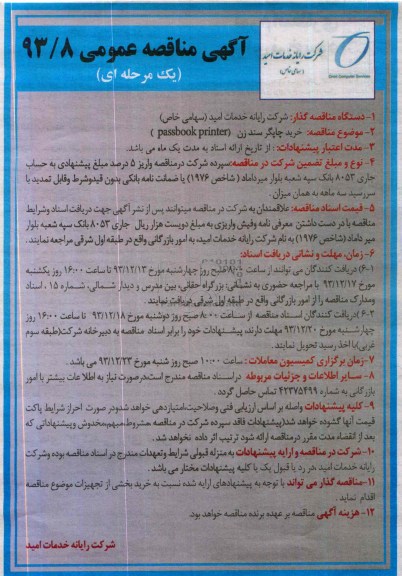 آگهی مناقصه عمومی ۹۳/۸
(یک مرحله ای)
شرکت رایانه خدمات امید
(سهامی خاص)
Omid Computer Services
۱- دستگاه مناقصه گذار: شرکت رایانه خدمات امید (سهامی خاص)
۲- موضوع مناقصه: خرید چاپگر سند زن (passbook printer)
۳- مدت اعتبار پیشنهادات: از تاریخ ارائه اسناد به مدت یک ماه می باشد.
۴- نوع و مبلغ تضمین شرکت در مناقصه: سپرده شرکت درمناقصه واریز ۵ درصد مبلغ پیشنهادی به حساب
جاری ۸۰۵۳ بانک سپه شعبه بلوار میرداماد (شاخص ۱۹۷۶) یا ضمانت نامه بانکی بدون قیدوشرط وقابل تمدید با
سررسید سه ماهه به همان میزان.
۵- قیمت اسناد مناقصه: علاقمندان به شرکت در مناقصه میتوانند پس از نشر آگهی جهت دریافت اسناد وشرایط
مناقصه با در دست داشتن معرفی نامه وفیش واریزی به مبلغ دویست هزار ریال جاری ۸۰۵۳ بانک سپه شعبه بلوار
میر داماد (شاخص ۱۹۷۶) به نام شرکت رایانه خدمات امید، به امور بازرگانی واقع در طبقه اول شرقی مراجعه نمایند.
۶- زمان، مهلت و نشانی دریافت اسناد:
۶-۱) دریافت کنندگان می توانند از ساعت ۸:۰۰ صبح روز چهارشنبه مورخ ۹۳/۱۲/۱۳ تا ساعت ۱۶:۰۰ روز یکشنبه
مورخ ۹۳/۱۲/۱۷ با مراجعه حضوری به نشانی: بزرگراه حقانی، بین مدرس و دیدار شمالی، شماره ۱۵، اسناد
ومدارک مناقصه را از امور بازرگانی واقع در طبقه اول شرقی دریافت نمایند.
۶-۲) دریافت کنندگان اسناد مناقصه از ساعت ۸:۰۰ صبح روز دوشنبه مورخ ۹۳/۱۲/۱۸ تا ساعت ۱۶:۰۰ روز
چهارشنبه مورخ ۹۳/۱۲/۲۰ مهلت دارند، پیشنهادات خود را برابر اسناد مناقصه به دبیرخانه شرکت(طبقه سوم
غربی)با اخذ رسید تحویل نمایند.
۷- زمان برگزاری کمیسیون معاملات: ساعت ۱۰:۰۰ صبح روز شنبه مورخ ۹۳/۱۲/۲۳ می باشد
۸- سایر اطلاعات و جزئیات مربوطه در اسناد مناقصه مندرج است.درصورت نیاز به اطلاعات بیشتر با امور
بازرگانی به شماره ۴۲۳۷۵۴۹۹ تماس حاصل گردد.
۹- کلیه پیشنهادات واصله بر اساس ارزیابی فنی وصلاحیت،امتیازدهی خواهد شدودر صورت احراز شرایط پاکت
قیمت آنها گشوده خواهد شد(پیشنهادات فاقد سپرده شرکت در مناقصه ،مشروط،مبهم،مخدوش وپیشنهاداتی که
بعد از انقضاء مدت مقرر درمناقصه ارائه شود ترتیب اثر داده نخواهد شد.
۱۰- شرکت در مناقصه و ارایه پیشنهادات به منزله قبولی شرایط وتعهدات مندرج در اسناد مناقصه بوده وشرکت
رایانه خدمات امید ،در رد یا قبول یک یا کلیه پیشنهادات مختار می باشد.
۱۱-مناقصه گذار می تواند با توجه به پیشنهادهای ارایه شده نسبت به خرید بخشی از تجهیزات موضوع مناقصه
اقدام نماید.
۱۲- هزینه آگهی مناقصه بر عهده برنده مناقصه خواهد بود.
شرکت رایانه خدمات امید